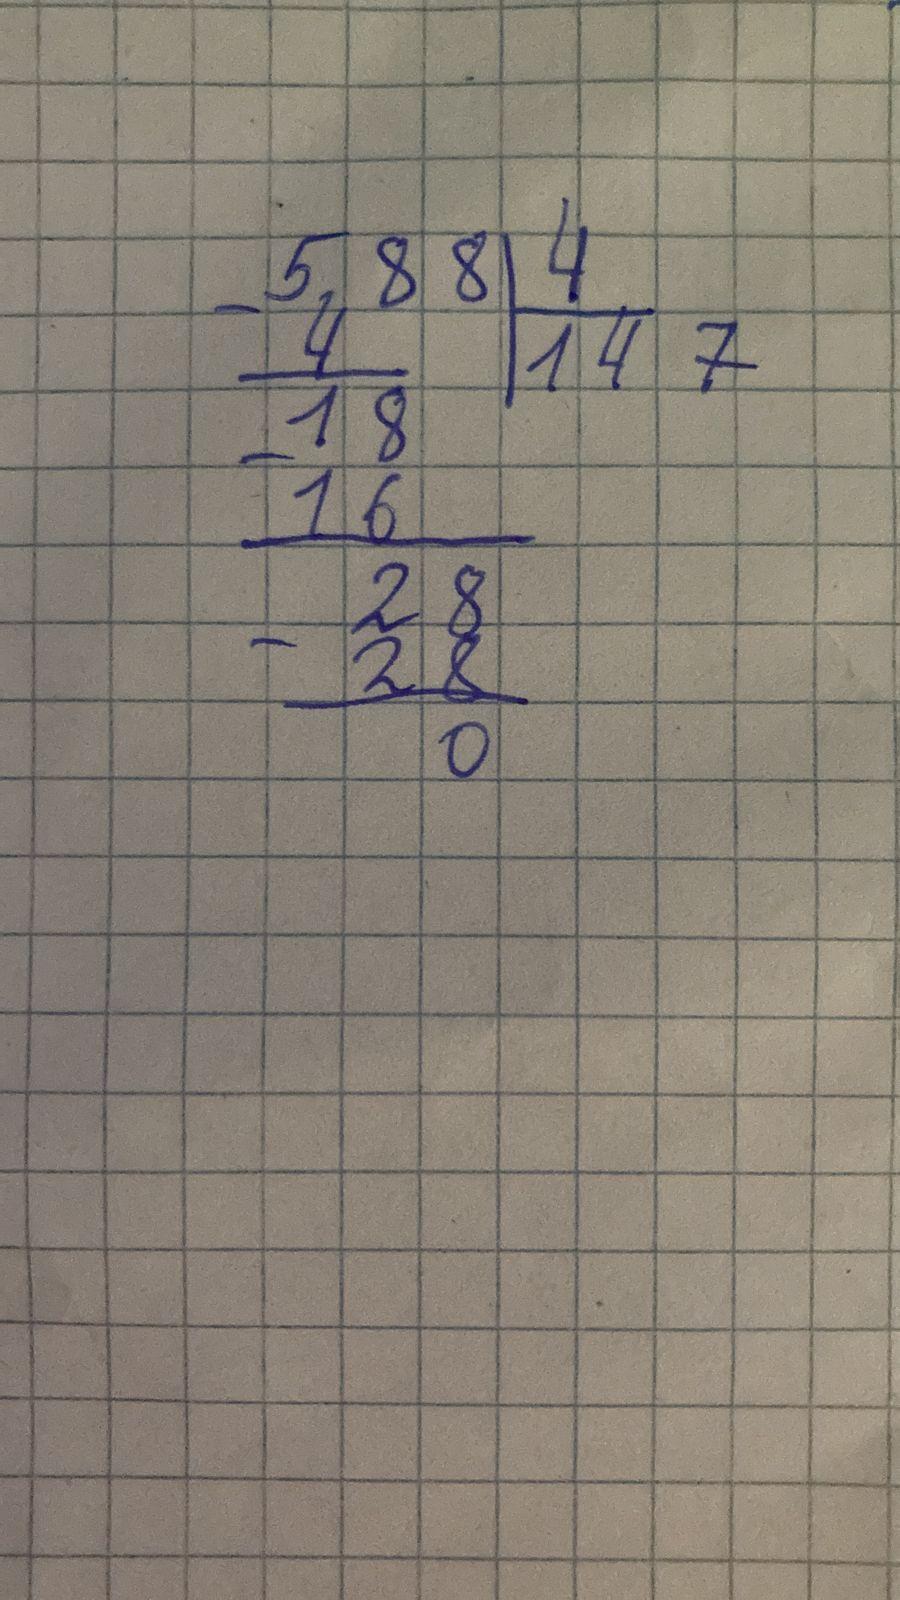 5,88 4
- 4 147
18
- 16
28
- 28
0